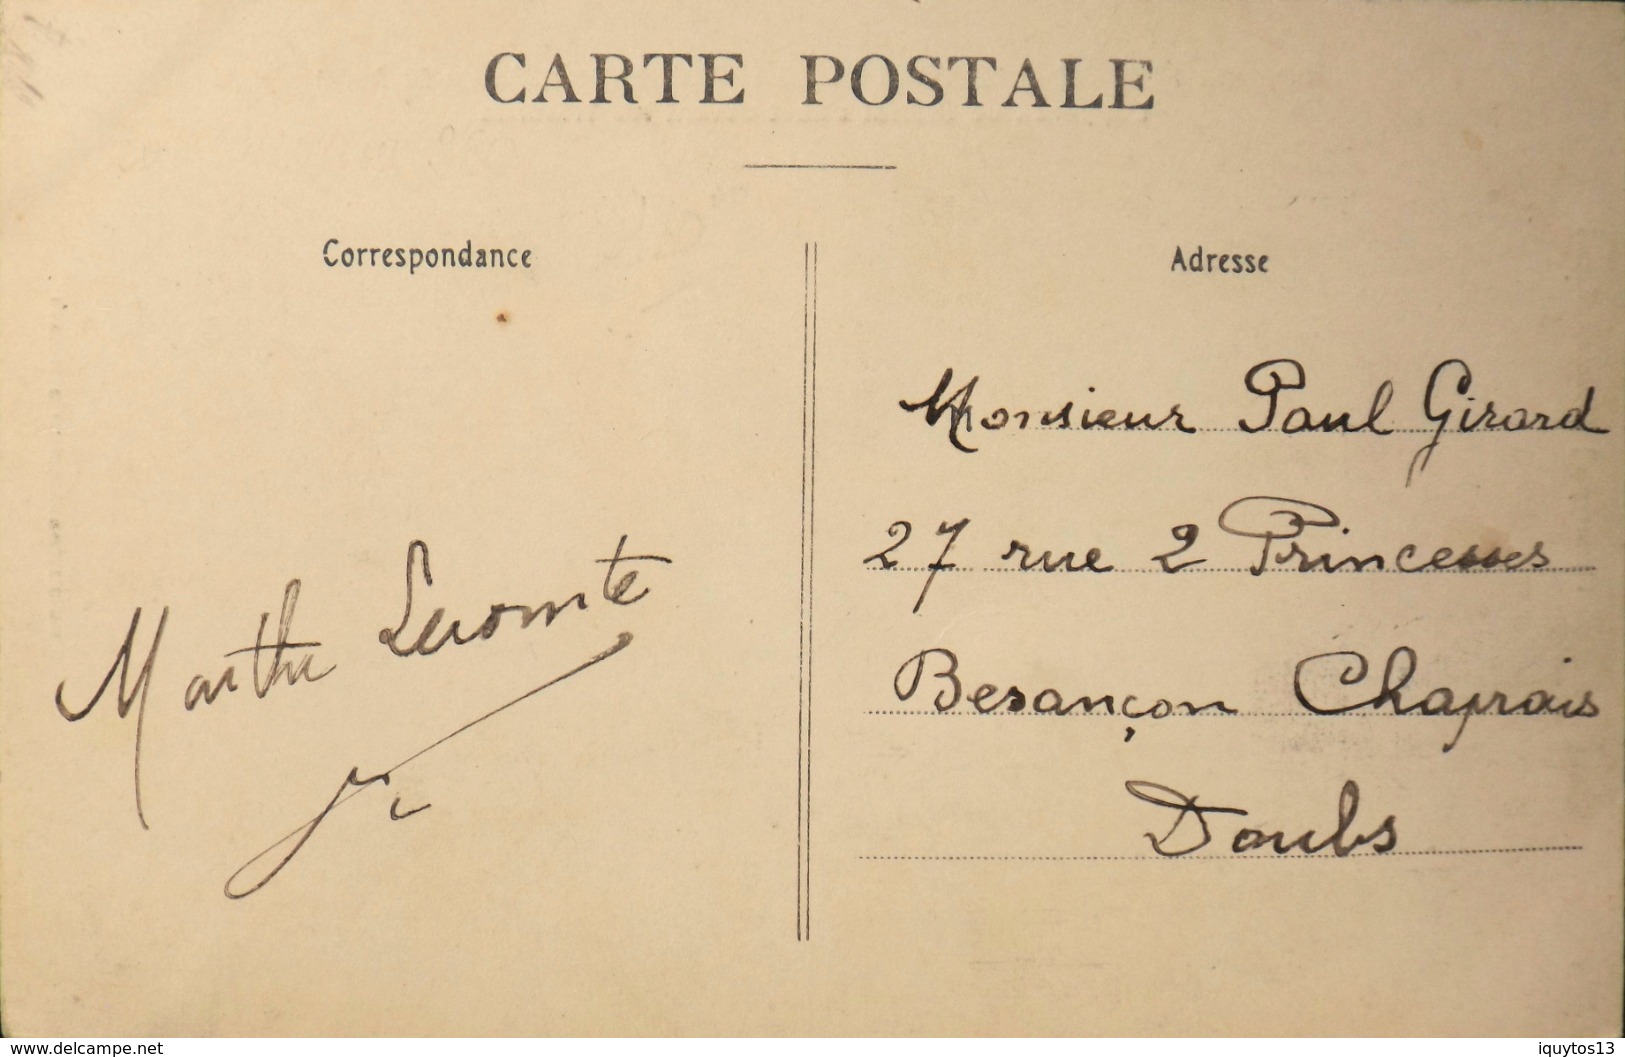 CARTE POSTALE
Correspondance
Marthe Lecomte
Adresse
Monsieur Paul Girard
27 rue 2 Princesses
Besançon Chaprais
Doubs
www.delcampe.net
iquytos13